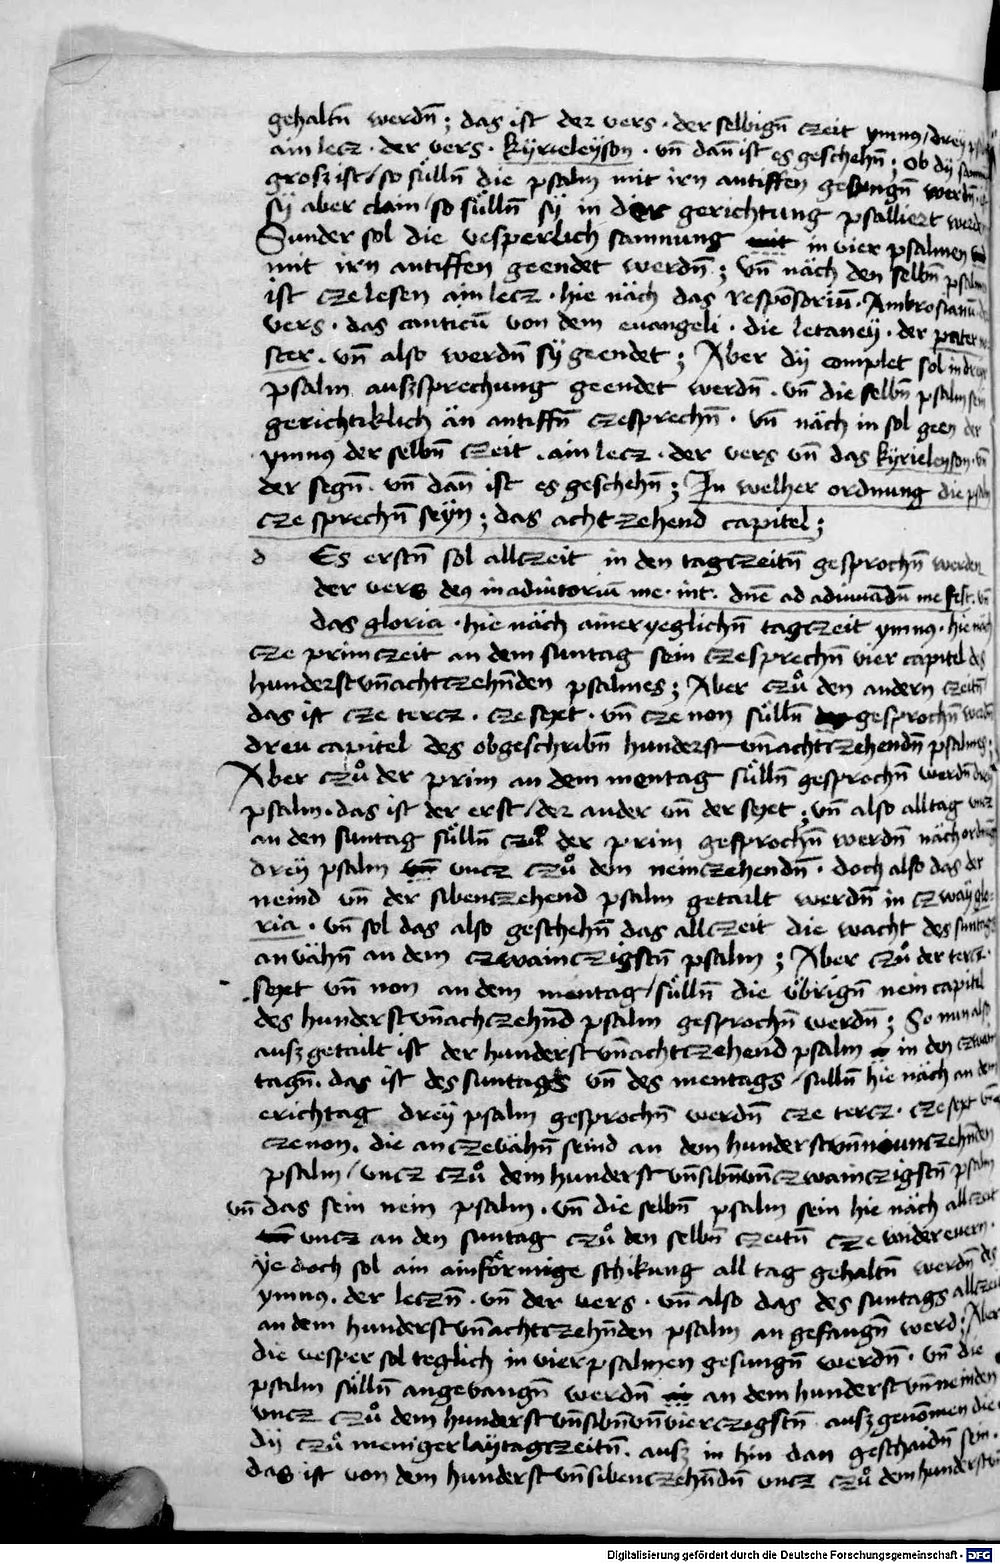 gehaltn̄ werdn̄; das ist der vers · der selbign̄ czeit ymnus / dreӱ
ain lecz · der vers · kӱrieleӱson · vn̄ dan̄ ist es geschehn̄; ob dӱ
grosz ist / so sülln̄ die psalm mit irn antiffen gesungn̄ werdn̄
sӱ aber clain / so sülln̄ sӱ in der gerichtung psalliert werdn̄
Sunder sol die vesperlich samnung in vier psalmen
mit irn antiffen geendet werdn̄; vn̄ näch den selbn̄ psalm
ist cze lesen ain lecz · hie näch das respōsoriū · Ambrosianū
vers · das canticū von dem euangeli · die letaneӱ · der pater no
ster · vn̄ also werdn̄ sӱ geendet; Aber dӱ complet sol in dreӱ
psalm auszsprechung geendet werdn̄ · vn̄ die selbn̄ psalm sein
gerichtiklich än antiffn̄ czesprechn̄ · vn̄ näch in sol geen der
ymnus der selbn̄ czeit · ain lecz · der vers vn̄ das kӱrieleyson · vn̄
der segn̄ · vn̄ dan̄ ist es geschehn̄; In welher ordnung die psalm
cze sprechn̄ seyn; das achtzehend capitel;
d Es erstn̄ sol allczeit in den tagczeitn̄ gesprochn̄ werden
der vers deus in adiutoriū me · int · dn̄e ad adiuuādū me fest · vn̄
das gloria · hie näch ainer yeglichn̄ tagczeit ymnus · hie näch
cze primczeit an dem suntag sein czesprechn̄ vier capitel des
hunderstvn̄achtczehn̄den psalmes; Aber czů den andern czeitn̄
das ist cze tercz · cze sext · vn̄ cze non sülln̄ gesprochn̄ werdn̄
dreu capitel des obgeschribn̄ hunderst vn̄achtczehendn̄ psalmes;
Aber czů der prim an dem mentag sülln̄ gesprochn̄ werdn̄ dreӱ
psalm · das ist der erst / der ander vn̄ der sext; vn̄ also alltag vncz
an den suntag sülln̄ czů der prim gesprochn̄ werdn̄ näch ordnung
dreӱ psalm vncz czů dem neinczehendn̄ · doch also das der
neind vn̄ der sibenczehend psalm getailt werdn̄ in czwaӱ glo-
ria · vn̄ sol das also geschehn̄ das allczeit die wacht des suntags
anvähn̄ an dem czwainczigistn̄ psalm; Aber czů der tercz ·
sext vn̄ non an dem mentag / sülln̄ die übrign̄ nein capitel
des hunderstvn̄achczehn̄d psalm gesprochn̄ werdn̄; So nun also
auszgetailt ist der hunderstvn̄achtczehend psalm in den czwain
tagn̄ · das ist des suntags vn̄ des mentags / sülln̄ hie näch an dem
erichtag dreӱ psalm gesprochn̄ werdn̄ cze tercz · cze sext vn̄
cze non · die anczevähn̄ seind an dem hunderstvn̄niunczehnden
psalm / vncz czů dem hunderst vn̄sibn̄vn̄czwainczigistn̄ psalm
vn̄ das sein nein psalm · vn̄ die selbn̄ psalm sein hie näch allczeit
vncz an den suntag czů den selbn̄ czeitn̄ cze widereuern ·
ӱedoch sol ain ainförmige schikung all tag gehaltn̄ werdn̄ des
ymnus · der leczn̄ · vn̄ der vers · vn̄ also das des suntags allczeit
an dem hunderstvn̄achtczehn̄den psalm angefangn̄ werd; Aber
die vesper sol teglich in vier psalmen gesungn̄ werdn̄ · vn̄ die
psalm sülln̄ angevangn̄ werdn̄ an dem hunderstvn̄neinden
vncz czů dem hunderstvn̄sibn̄vn̄vierczigstn̄ auszgenōmen die
dӱ czů meniger laӱ tagczeitn̄ · ausz in hin dan geschaidn̄ sein ·
das ist von dem hunderstvn̄sibenczehn̄dn̄ vncz czů dem hunderstvn̄
Digitalisierung gefördert durch die Deutsche Forschungsgemeinschaft - DFG